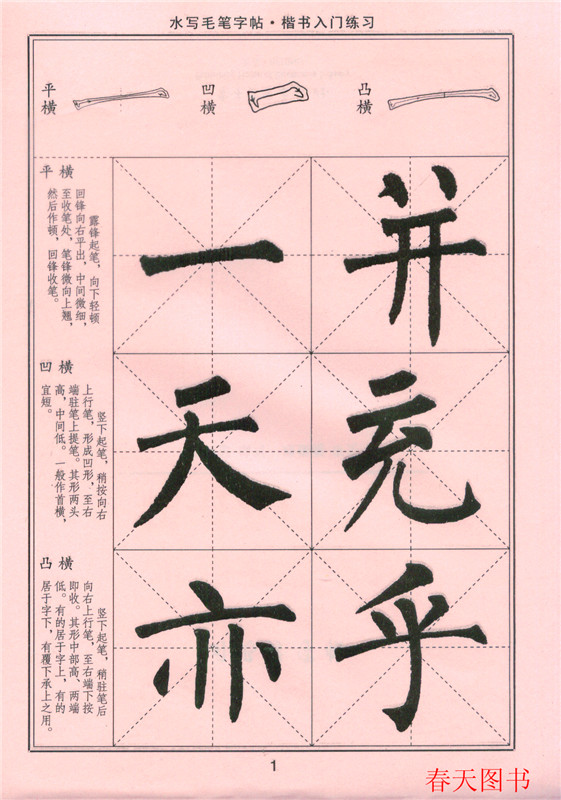 水写毛笔字帖·楷书入门练习
平横
凹横
凸横
平横
露锋起笔，向下轻顿
回锋向右平出，中间微细，
至收笔处，笔锋微向上翘，
然后作顿，回锋收笔。
一
并
凹横
竖下起笔，稍按向右
上行笔，形成凹形，至右
端驻笔上提笔。其形两头
高，中间低。一般作首横，
宜短。
天
充
凸横
竖下起笔，稍驻笔后
向右上行笔，至右端下按
即收。其形中部高、两端
低。有的居于字上，有的
居于字下，有覆下承上之用。
亦
乎
1
春天图书